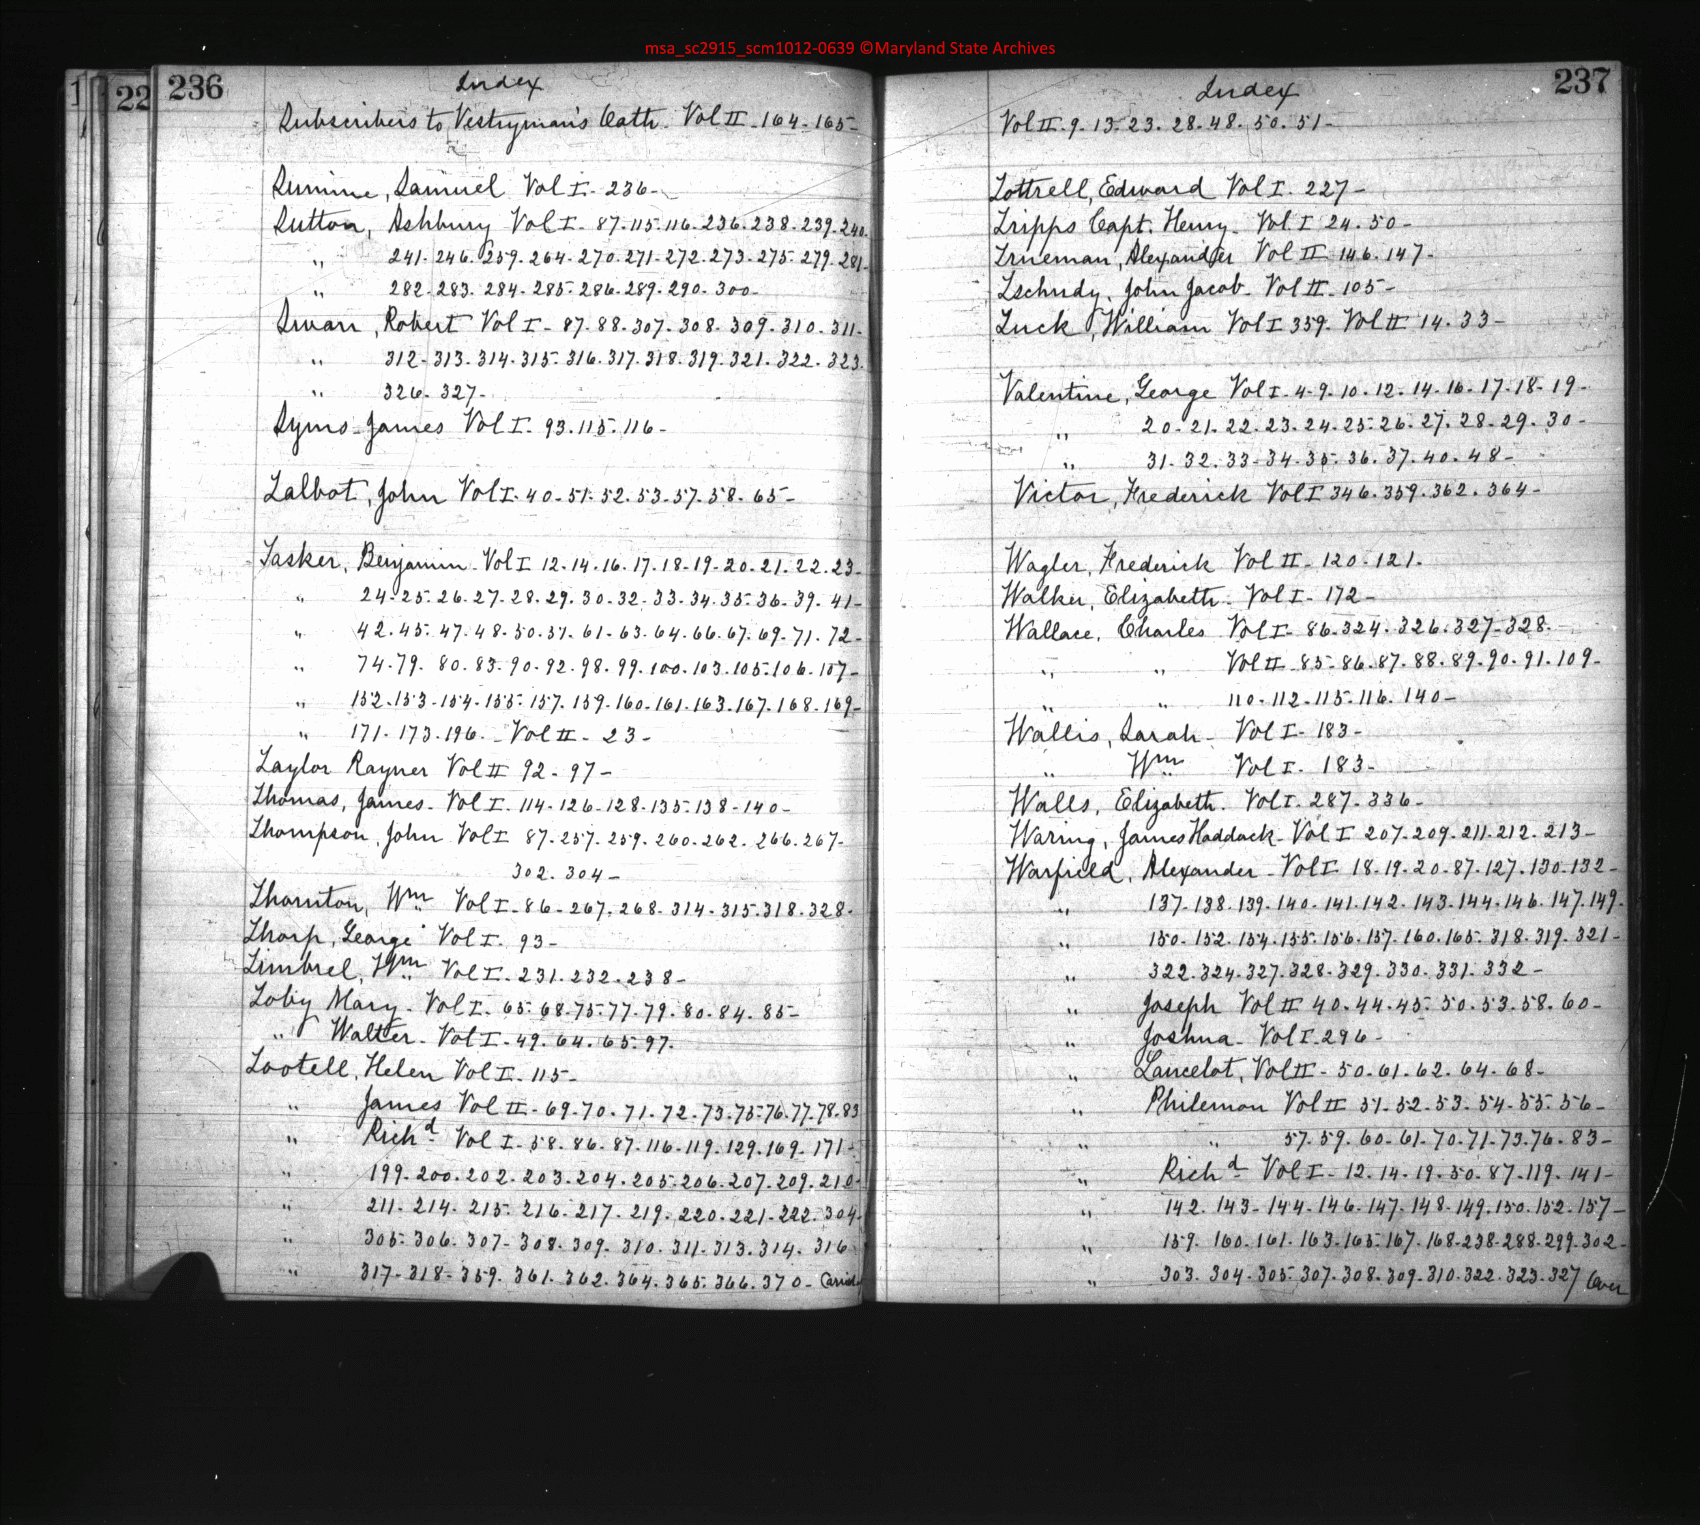 msa_sc2915_scm1012-0639 ©Maryland State Archives
1
22
236
Index
Subscribers to Vestryman's Oath. Vol II - 164 - 165 -
Summe, Samuel Vol I - 236 -
Sutton, Ashbury Vol I - 87 - 115 - 116 - 236 - 238 - 239 - 240.
" 241 - 246. 259 - 264 - 270 - 271 - 272 - 273 - 275 - 279. 281 -
" 282 - 283 - 284 - 285 - 286 - 289 - 290 - 300 -
Swan, Robert Vol I - 87. 88. 307. 308. 309. 310. 311.
" 312 - 313. 314. 315. 316. 317. 318. 319. 321. 322. 323.
" 326. 327 -
Syms - James Vol I - 93. 115. 116 -
Talbot, John Vol I - 40 - 51. 52. 53 - 57. 58. 65 -
Tasker, Benjamin - Vol I 12 - 14 - 16. 17. 18 - 19 - 20 - 21. 22. 23 -
" 24 - 25. 26. 27 - 28. 29. 30 - 32. 33. 34. 35. 36. 39. 41 -
" 42. 45. 47. 48. 50. 51. 61 - 63. 64. 66. 67. 69. 71. 72 -
" 74 - 79. 80. 83. 90. 92. 98. 99. 100. 103. 105. 106. 107 -
" 152 - 153 - 154 - 155 - 157. 159 - 160 - 161. 163. 167. 168 - 169 -
" 171. 173. 196. Vol II - 23 -
Taylor Rayner Vol II 92 - 97 -
Thomas, James - Vol I - 114 - 126 - 128 - 135 - 138 - 140 -
Thompson, John Vol I 87 - 257. 259. 260. 262. 266. 267 -
302. 304 -
Thornton, Wm Vol I - 86 - 267. 268. 314 - 315. 318. 328 -
Thorp, George Vol I. 93 -
Timbrel, Wm Vol I - 231. 232. 238 -
Toby Mary - Vol I - 65. 68. 75. 77. 79. 80. 84. 85 -
" Walter - Vol I - 49. 64. 65. 97.
Tootell, Helen Vol I - 115 -
" James Vol II - 69. 70. 71. 72. 73. 75. 76. 77. 78. 83
" Richd Vol I - 58. 86. 87. 116. 119. 129. 169. 171 -
" 199. 200. 202. 203. 204. 205. 206. 207. 209. 210 -
" 211. 214. 215. 216. 217. 219. 220. 221. 222. 304 -
" 305. 306. 307. 308. 309. 310. 311. 313. 314. 316
" 317 - 318 - 359. 361. 362. 364. 365. 366. 370 -
237
Index
Vol II. 9. 13. 23. 28. 48. 50. 51 -
Tottrell, Edward Vol I. 227 -
Tripps Capt. Henry - Vol I 24. 50 -
Trueman, Alexander Vol II 146. 147 -
Tschudy, John Jacob - Vol II - 105 -
Tuck, William Vol I 359. Vol II 14. 33 -
Valentine, George Vol I - 4 - 9. 10. 12. 14. 16. 17. 18. 19 -
" 20 - 21. 22. 23. 24. 25. 26. 27. 28. 29. 30 -
" 31. 32. 33 - 34. 35. 36. 37. 40. 48 -
Victor, Frederick Vol I 346. 359. 362. 364 -
Wagler, Frederick Vol II - 120. 121.
Walker, Elizabeth - Vol I - 172 -
Wallace, Charles Vol I - 86. 324. 326. 327 - 328.
" " Vol II - 85 - 86. 87. 88. 89. 90. 91. 109 -
" " 110 - 112 - 115. 116. 140 -
Wallis, Sarah - Vol I - 183 -
" Wm Vol I. 183 -
Walls, Elizabeth. Vol I. 287. 336 -
Waring, James Haddock - Vol I 207. 209. 211. 212. 213 -
Warfield, Alexander - Vol I - 18. 19. 20. 87. 127. 130. 132 -
" 137 - 138. 139. 140. 141. 142. 143. 144. 146. 147. 149 -
" 150 - 152. 154. 155. 156. 157. 160. 165. 318. 319. 321 -
" 322. 324. 327. 328. 329. 330. 331. 332 -
" Joseph Vol II 40. 44. 45. 50. 53. 58. 60 -
" Joshua - Vol I. 296 -
" Lancelot, Vol II - 50. 61. 62. 64. 68 -
" Philemon Vol II 51 - 52. 53. 54 - 55. 56 -
" " 57. 59. 60. 61. 70. 71. 73. 76. 83 -
" Richd Vol I - 12. 14. 19. 50. 87. 119. 141 -
" 142. 143 - 144. 146. 147. 148. 149. 150. 152. 157 -
" 159. 160. 161. 163. 165. 167. 168 - 238 - 288 - 299. 302 -
" 303. 304. 305. 307. 308. 309. 310. 322. 323. 327 Over